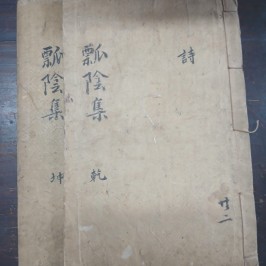 詩
瓢陰集 乾
廿二
瓢陰集 坤